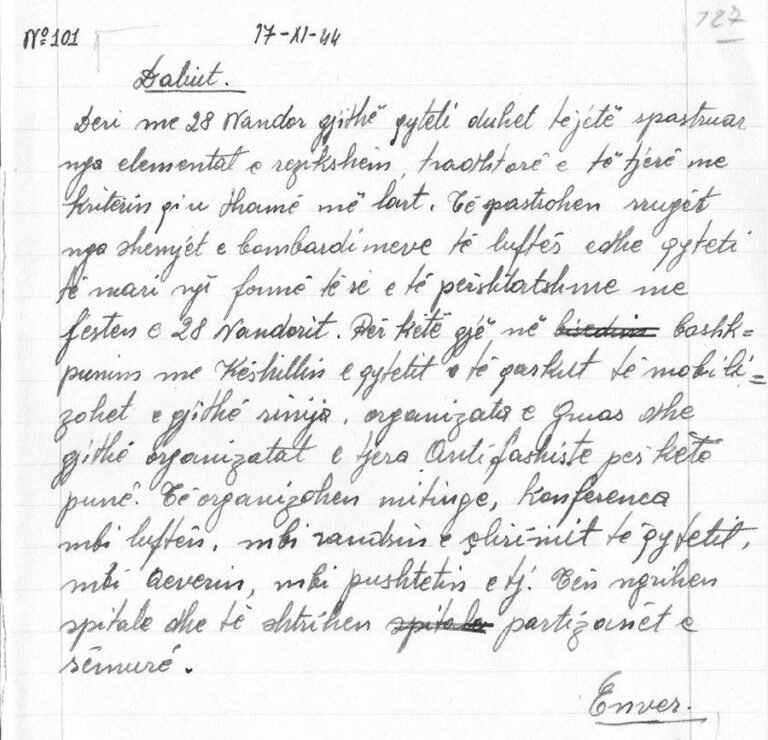 127
Nº 101 17-XI-44
Daliut.
Deri me 28 Nandor gjithë qyteti duhet të jetë spastruar
nga elementat e rezikshëm, tradhtorë e të tjerë me
kriterin qi u dhamë më lart. Të pastrohen rrugët
nga shenjët e bombardimeve të luftës edhe qyteti
të mari një formë të re e të përshtatshme me
festen e 28 Nandorit. Për këtë gjë në bisedim bashk=
punim me Këshillin e qytetit e të qarkut të mobili=
zohet e gjithë rinija, organizata e Gruas dhe
gjithë organizatat e tjera Antifashiste për këto
punë. Të organizohen mitinge, konferenca
mbi luftën, mbi randsin e çlirimit të qytetit,
mbi Qeverin, mbi pushtetin e tj. Të ngrihen
spitale dhe të shtrihen spitale partizanët e
sëmurë.
Enver.